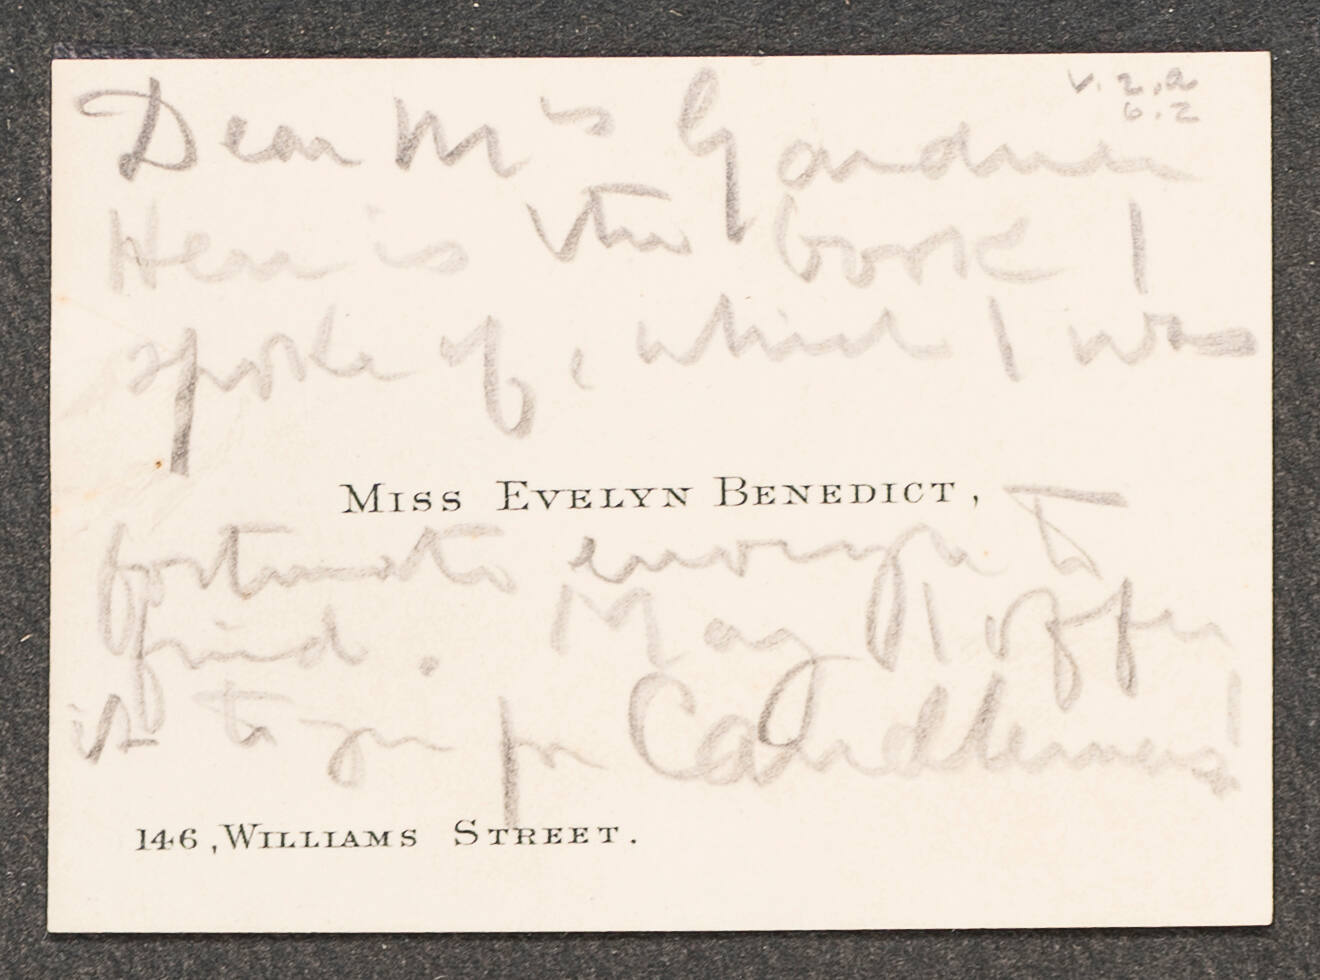 v. 2. a
6. 2
Dear Mrs Gardner
Here is the book I
spoke of, which I was
MISS EVELYN BENEDICT,
fortunate enough to
find. May I offer
it to you for Candlemas!
146, WILLIAMS STREET.